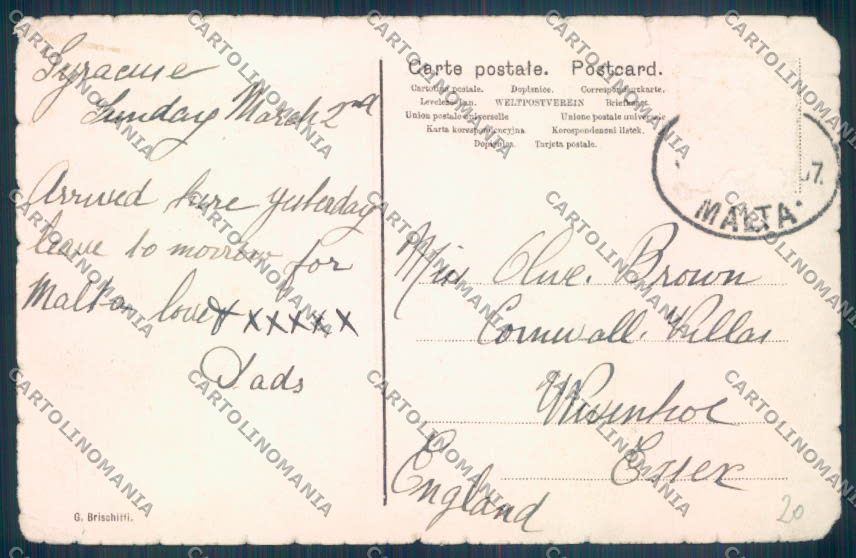 Syracuse
Sunday March 2nd
Arrived here yesterday
leave to morrow for
Malta love X X X X X X
Dads
G. Brischitti.
Carte postale. Postcard.
Cartolina postale. Dopisnice. Correspondenzkarte.
Levelező Lap. WELTPOSTVEREIN Briefkaart.
Union postale universelle Unione postale universale
Karta korespondencyjna Korespondenzni listek.
Dopisnica. Tarjeta postale.
07.
MALTA
Miss Olive. Brown
Cornwall. Villas
Wivenhoe
Essex
England
20
CARTOLINOMANIA